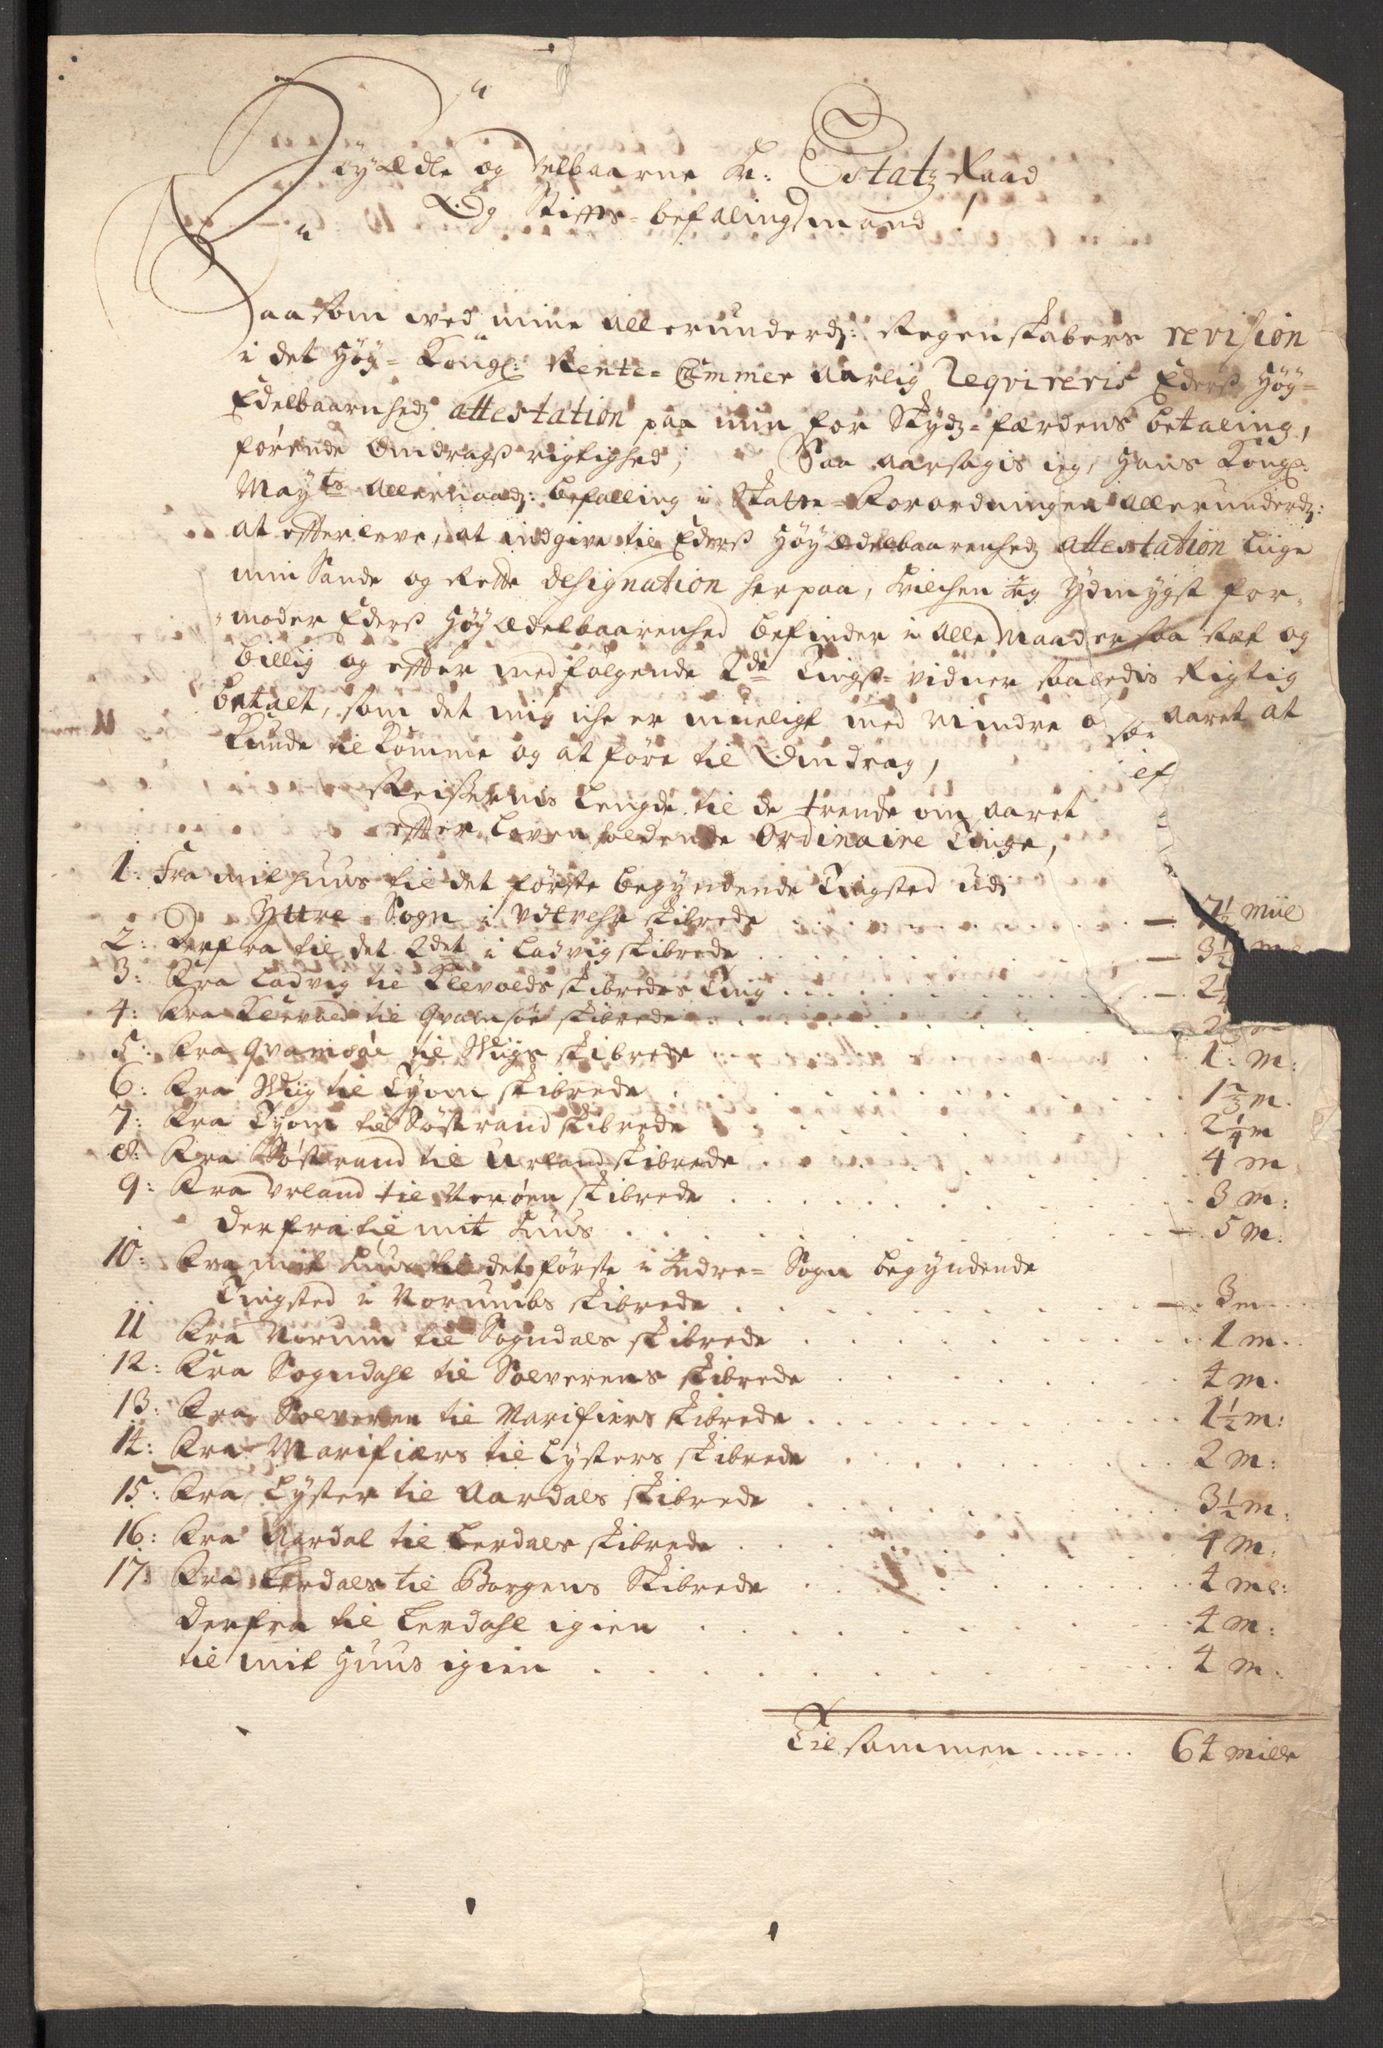 Höyædle og Velbaarne Hr: Estatz Raad
Og Stifts-befalingsmand
Saasom wed mine allerunderd: Regenskabers revision
i det Høy-Kongl: Rente-Cammer aarlig reqvireris Ederß Høy-
Edelbaarnhedz attestation paa min for Skydz-færdens betaling,
førende Omdragß rigtighed; Saa aarsagis ieg, Hans Kongl:
Mayts allernaadz: befalling i Skatte-Forordningen allerunderdz:
at efterleve, at indgive til Ederß Høyædelbaarenhedz attestation
min Sande og Rette designation herpaa, hvilchen ieg ydmygst for-
moder Ederß Høyædelbaarenhed befinder i alle Maader saa Ret og
billig og efter medfølgende 2de Tingß-vidner saaledis Rigtig
betalt, som det mig iche er mueligt med mindre o aaret at
Kunde tilkomme og at føre til Omdrag,
Reisernis Lengde til de trende om aaret
efter Loven holdende Ordinaire Tinge,
1: Fra mit huus til det første begyndende Tingsted udi
Yttre Sogn i Utvehr skibrede . . . 7½ Miil
2: Derfra til det 2det i Ladvig skibrede . . . 3½
3: Fra Ladvig til Klevolds skibredes Ting . . . 2
4: Fra Klevold til Qvamsøe skibrede . . . 2
5: Fra Qvamsøe til Wiigs skibrede . . . 1: M:
6: Fra Wiig til Tyom skibrede . . . 1⅔ m.
7: Fra Tyom til Søstrand skibrede . . . 2¼ m
8: Fra Søstrand til Urland skibrede . . . 4 m
9: Fra Urland til Nerøen skibrede . . . 3 m:
Derfra til mit Huus . . . 5 M:
10: Fra mit Huus til det første i Indre-Sogn begyndende
Tingsted i Norumbs skibrede . . . 3 m
11 Fra Norum til Sogndals skibrede . . . 1 m.
12: Fra Sogndahl til Solverens skibrede . . . 4 m.
13: Fra Solveren til Marifiers skibrede . . . 1½ m:
14: Fra Marifiærs til Lysters skibrede . . . 2 M:
15: Fra Lyster til Aardals skibrede . . . 3½ m.
16: Fra Aardal til Lerdals skibrede . . . 4 M:
17: Fra Lerdals til Borgens Skibrede . . . 4 ml:
Derfra til Lerdahl igien . . . 4 M:
til mit Huus igien . . . 4 M:
Tilsammen ....... 64 Mille